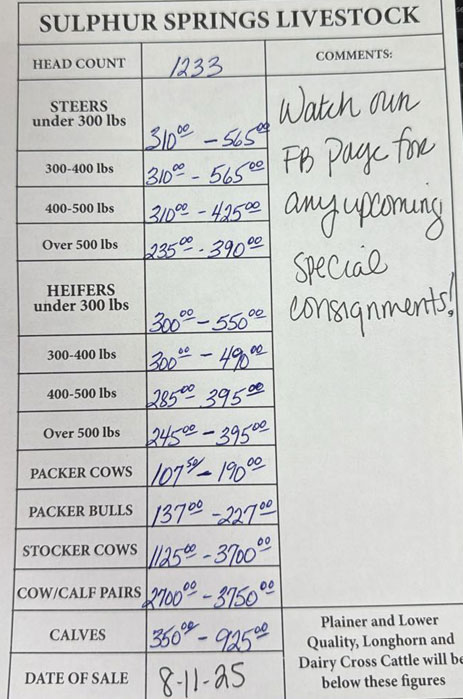 SULPHUR SPRINGS LIVESTOCK
HEAD COUNT 1233 COMMENTS:
STEERS
under 300 lbs 310.00 - 565.00
300-400 lbs 310.00 - 565.00
400-500 lbs 310.00 - 425.00
Over 500 lbs 235.00 - 390.00
HEIFERS
under 300 lbs 300.00 - 550.00
300-400 lbs 300.00 - 490.00
400-500 lbs 285.00 395.00
Over 500 lbs 245.00 - 395.00
PACKER COWS 107.50 - 190.00
PACKER BULLS 137.00 - 227.00
STOCKER COWS 1125.00 - 3700.00
COW/CALF PAIRS 2700.00 - 3750.00
CALVES 350.00 - 925.00
DATE OF SALE 8-11-25
Watch our
FB Page for
any upcoming
special
consignments!
Plainer and Lower
Quality, Longhorn and
Dairy Cross Cattle will be
below these figures